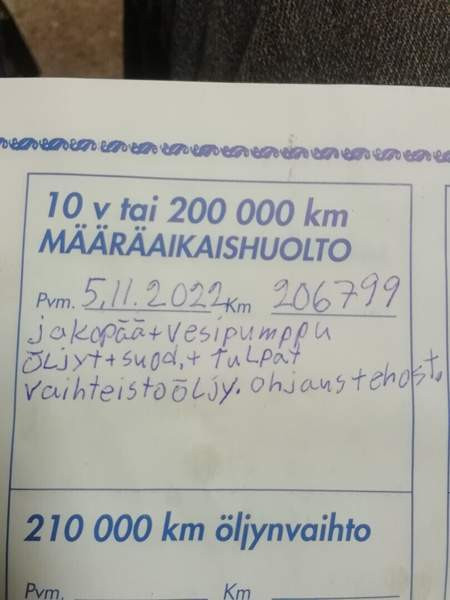 10 v tai 200 000 km
MÄÄRÄAIKAISHUOLTO
Pvm. 5.11.2022 Km 206799
jakopää+vesipumppu
öljyt+suod.+tulpat
vaihteistoöljy. ohjaustehost.
210 000 km öljynvaihto
Pvm. Km